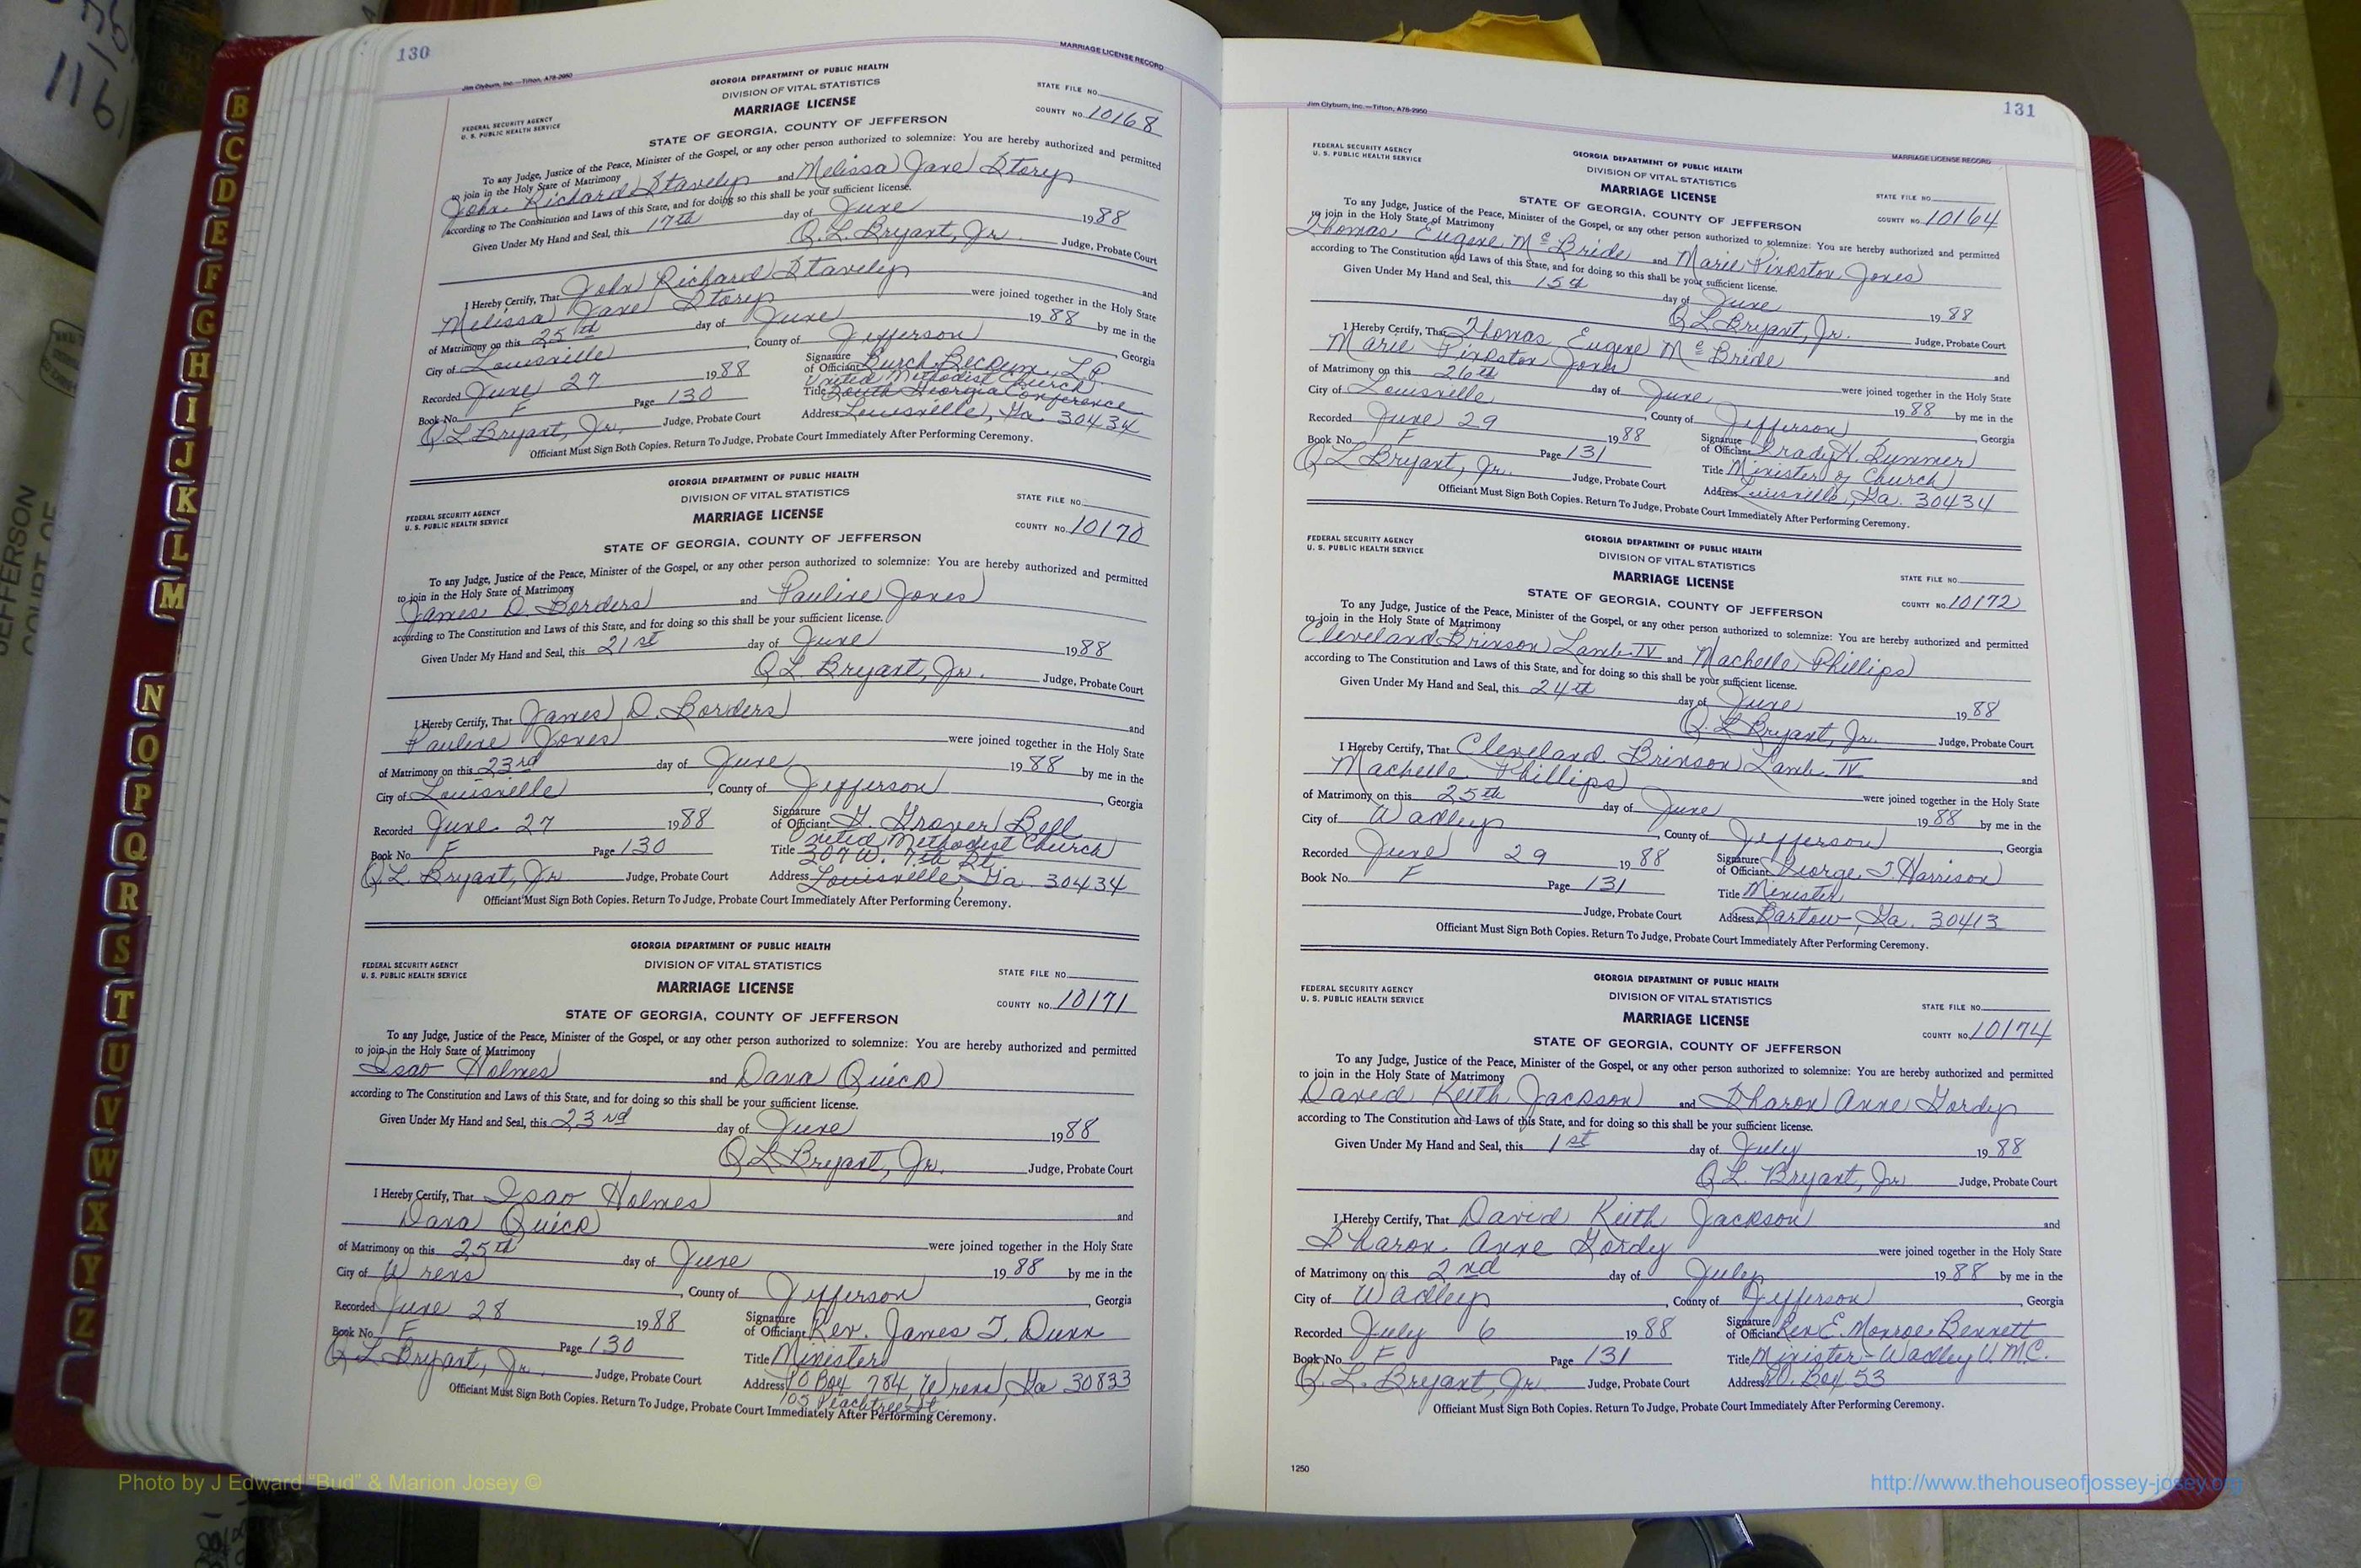 130
MARRIAGE LICENSE RECORD
Jim Clyburn, Inc.—Tifton, A78-2950
GEORGIA DEPARTMENT OF PUBLIC HEALTH
DIVISION OF VITAL STATISTICS
MARRIAGE LICENSE
STATE OF GEORGIA, COUNTY OF JEFFERSON
FEDERAL SECURITY AGENCY
U. S. PUBLIC HEALTH SERVICE
STATE FILE NO.
COUNTY NO. 10168
To any Judge, Justice of the Peace, Minister of the Gospel, or any other person authorized to solemnize: You are hereby authorized and permitted
to join in the Holy State of Matrimony
John Richard Stavely and Melissa Jane Story
according to The Constitution and Laws of this State, and for doing so this shall be your sufficient license.
Given Under My Hand and Seal, this 17th day of June 1988
Q.L. Bryant, Jr. Judge, Probate Court
I Hereby Certify, That John Richard Stavely and
Melissa Jane Story were joined together in the Holy State
of Matrimony on this 25th day of June 1988 by me in the
City of Louisville, County of Jefferson, Georgia
Recorded June 27 1988 Signature of Officiant Burch Becum, L.P.
United Methodist Church
Book No. F Page 130 Title South Georgia Conference
Q L Bryant, Jr. Judge, Probate Court Address Louisville, Ga 30434
Officiant Must Sign Both Copies. Return To Judge, Probate Court Immediately After Performing Ceremony.
GEORGIA DEPARTMENT OF PUBLIC HEALTH
DIVISION OF VITAL STATISTICS
MARRIAGE LICENSE
STATE OF GEORGIA, COUNTY OF JEFFERSON
FEDERAL SECURITY AGENCY
U. S. PUBLIC HEALTH SERVICE
STATE FILE NO.
COUNTY NO. 10170
To any Judge, Justice of the Peace, Minister of the Gospel, or any other person authorized to solemnize: You are hereby authorized and permitted
to join in the Holy State of Matrimony
James D. Borders and Pauline Jones
according to The Constitution and Laws of this State, and for doing so this shall be your sufficient license.
Given Under My Hand and Seal, this 21st day of June 1988
Q L. Bryant, Jr. Judge, Probate Court
I Hereby Certify, That James D. Borders and
Pauline Jones were joined together in the Holy State
of Matrimony on this 23rd day of June 1988 by me in the
City of Louisville, County of Jefferson, Georgia
Recorded June 27 1988 Signature of Officiant G. Grover Bell
United Methodist Church
Book No. F Page 130 Title 307 W. 7th St.
Q.L. Bryant, Jr. Judge, Probate Court Address Louisville, Ga. 30434
Officiant Must Sign Both Copies. Return To Judge, Probate Court Immediately After Performing Ceremony.
GEORGIA DEPARTMENT OF PUBLIC HEALTH
DIVISION OF VITAL STATISTICS
MARRIAGE LICENSE
STATE OF GEORGIA, COUNTY OF JEFFERSON
FEDERAL SECURITY AGENCY
U. S. PUBLIC HEALTH SERVICE
STATE FILE NO.
COUNTY NO. 10171
To any Judge, Justice of the Peace, Minister of the Gospel, or any other person authorized to solemnize: You are hereby authorized and permitted
to join in the Holy State of Matrimony
Isao Holmes and Dana Quick
according to The Constitution and Laws of this State, and for doing so this shall be your sufficient license.
Given Under My Hand and Seal, this 23rd day of June 1988
Q L Bryant, Jr. Judge, Probate Court
I Hereby Certify, That Isao Holmes and
Dana Quick were joined together in the Holy State
of Matrimony on this 25th day of June 1988 by me in the
City of Wrens, County of Jefferson, Georgia
Recorded June 28 1988 Signature of Officiant Rev. James T. Dunn
Book No. F Page 130 Title Minister
Q L Bryant, Jr. Judge, Probate Court Address PO Box 784, Wrens, Ga 30833
105 Peachtree St.
Officiant Must Sign Both Copies. Return To Judge, Probate Court Immediately After Performing Ceremony.
131
Jim Clyburn, Inc.—Tifton, A78-2950
MARRIAGE LICENSE RECORD
FEDERAL SECURITY AGENCY
U. S. PUBLIC HEALTH SERVICE
GEORGIA DEPARTMENT OF PUBLIC HEALTH
DIVISION OF VITAL STATISTICS
MARRIAGE LICENSE
STATE OF GEORGIA, COUNTY OF JEFFERSON
STATE FILE NO.
COUNTY NO. 10164
To any Judge, Justice of the Peace, Minister of the Gospel, or any other person authorized to solemnize: You are hereby authorized and permitted
to join in the Holy State of Matrimony
Thomas Eugene McBride and Marie Pinkston Jones
according to The Constitution and Laws of this State, and for doing so this shall be your sufficient license.
Given Under My Hand and Seal, this 15th day of June 1988
Q L Bryant, Jr. Judge, Probate Court
I Hereby Certify, That Thomas Eugene McBride and
Marie Pinkston Jones were joined together in the Holy State
of Matrimony on this 26th day of June 1988 by me in the
City of Louisville, County of Jefferson, Georgia
Recorded June 29 1988 Signature of Officiant Grady H. Summer
Book No. F Page 131 Title Minister of Church
Q L Bryant, Jr. Judge, Probate Court Address Louisville, Ga. 30434
Officiant Must Sign Both Copies. Return To Judge, Probate Court Immediately After Performing Ceremony.
FEDERAL SECURITY AGENCY
U. S. PUBLIC HEALTH SERVICE
GEORGIA DEPARTMENT OF PUBLIC HEALTH
DIVISION OF VITAL STATISTICS
MARRIAGE LICENSE
STATE OF GEORGIA, COUNTY OF JEFFERSON
STATE FILE NO.
COUNTY NO. 10172
To any Judge, Justice of the Peace, Minister of the Gospel, or any other person authorized to solemnize: You are hereby authorized and permitted
to join in the Holy State of Matrimony
Cleveland Brinson Lamb IV and Machelle Phillips
according to The Constitution and Laws of this State, and for doing so this shall be your sufficient license.
Given Under My Hand and Seal, this 24th day of June 1988
Q L Bryant, Jr. Judge, Probate Court
I Hereby Certify, That Cleveland Brinson Lamb IV and
Machelle Phillips were joined together in the Holy State
of Matrimony on this 25th day of June 1988 by me in the
City of Wadley, County of Jefferson, Georgia
Recorded June 29 1988 Signature of Officiant George T. Harrison
Book No. F Page 131 Title Minister
Judge, Probate Court Address Bartow, Ga. 30413
Officiant Must Sign Both Copies. Return To Judge, Probate Court Immediately After Performing Ceremony.
FEDERAL SECURITY AGENCY
U. S. PUBLIC HEALTH SERVICE
GEORGIA DEPARTMENT OF PUBLIC HEALTH
DIVISION OF VITAL STATISTICS
MARRIAGE LICENSE
STATE OF GEORGIA, COUNTY OF JEFFERSON
STATE FILE NO.
COUNTY NO. 10174
To any Judge, Justice of the Peace, Minister of the Gospel, or any other person authorized to solemnize: You are hereby authorized and permitted
to join in the Holy State of Matrimony
David Keith Jackson and Sharon Anne Gordy
according to The Constitution and Laws of this State, and for doing so this shall be your sufficient license.
Given Under My Hand and Seal, this 1st day of July 1988
Q L. Bryant, Jr. Judge, Probate Court
I Hereby Certify, That David Keith Jackson and
Sharon Anne Gordy were joined together in the Holy State
of Matrimony on this 2nd day of July 1988 by me in the
City of Wadley, County of Jefferson, Georgia
Recorded July 6 1988 Signature of Officiant Rev E. Monroe Bennett
Book No. F Page 131 Title Minister-Wadley U.M.C.
Q. L. Bryant, Jr. Judge, Probate Court Address P.O. Box 53
Officiant Must Sign Both Copies. Return To Judge, Probate Court Immediately After Performing Ceremony.
1250
B
C
D
E
F
G
H
I
J
K
L
M
N
O
P
Q
R
S
T
U
V
W
X
Y
Z
JEFFERSON
COURT OF
Photo by J Edward "Bud" & Marion Josey ©
http://www.thehouseofjossey-josey.org